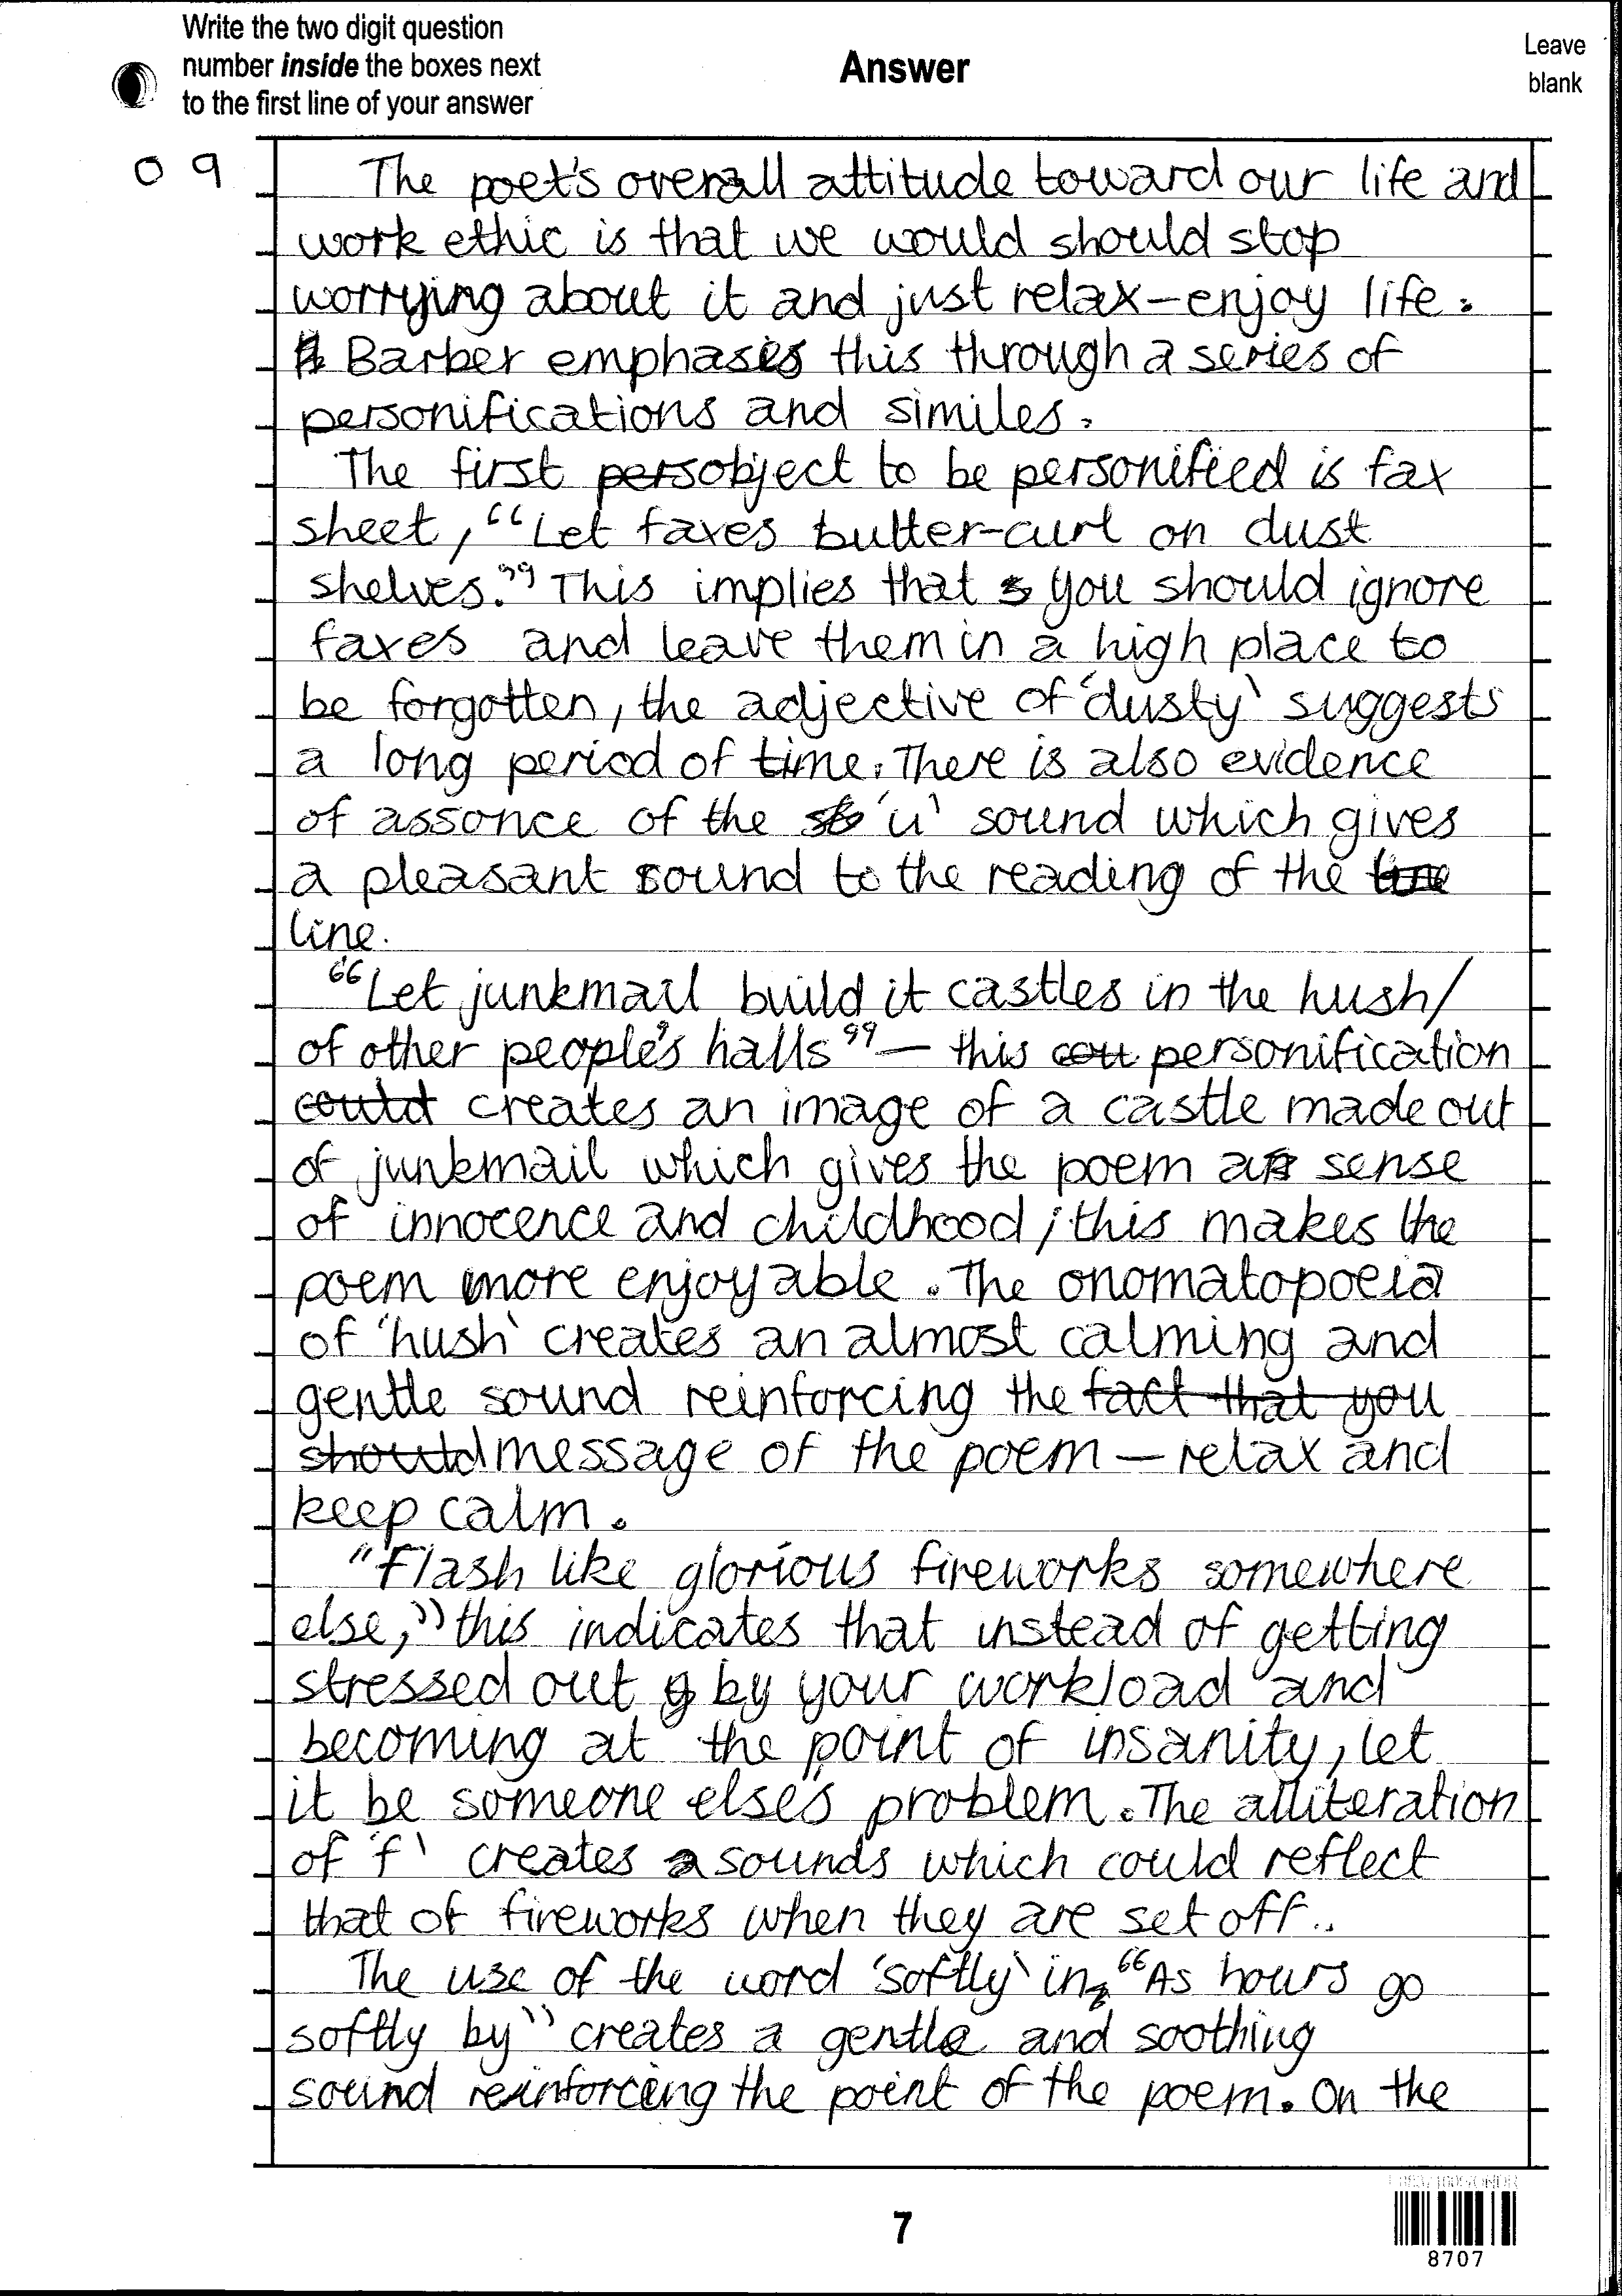 Write the two digit question
number inside the boxes next
to the first line of your answer
Answer
Leave
blank
09
The poet's overall attitude toward our life and
work ethic is that we would should stop
worrying about it and just relax—enjoy life.
Barber emphasis this through a series of
personifications and similes.
The first pers object to be personified is fax
sheet, "Let faxes butter-curl on dust
shelves." This implies that you should ignore
faxes and leave them in a high place to
be forgotten, the adjective of 'dusty' suggests
a long period of time. There is also evidence
of assonce of the 'u' sound which gives
a pleasant sound to the reading of the line
line.
"Let junkmail build it castles in the hush/
of other people's halls" — this cou personification
could creates an image of a castle made out
of junkmail which gives the poem a sense
of innocence and childhood; this makes the
poem more enjoyable. The onomatopoeia
of 'hush' creates an almost calming and
gentle sound reinforcing the fact that you
should message of the poem — relax and
keep calm.
"Flash like glorious fireworks somewhere
else," this indicates that instead of getting
stressed out by your workload and
becoming at the point of insanity, let
it be someone else's problem. The alliteration
of 'f' creates a sounds which could reflect
that of fireworks when they are set off..
The use of the word 'softly' in "As hours go
softly by" creates a gentle and soothing
sound reinforcing the point of the poem. On the
7
8707